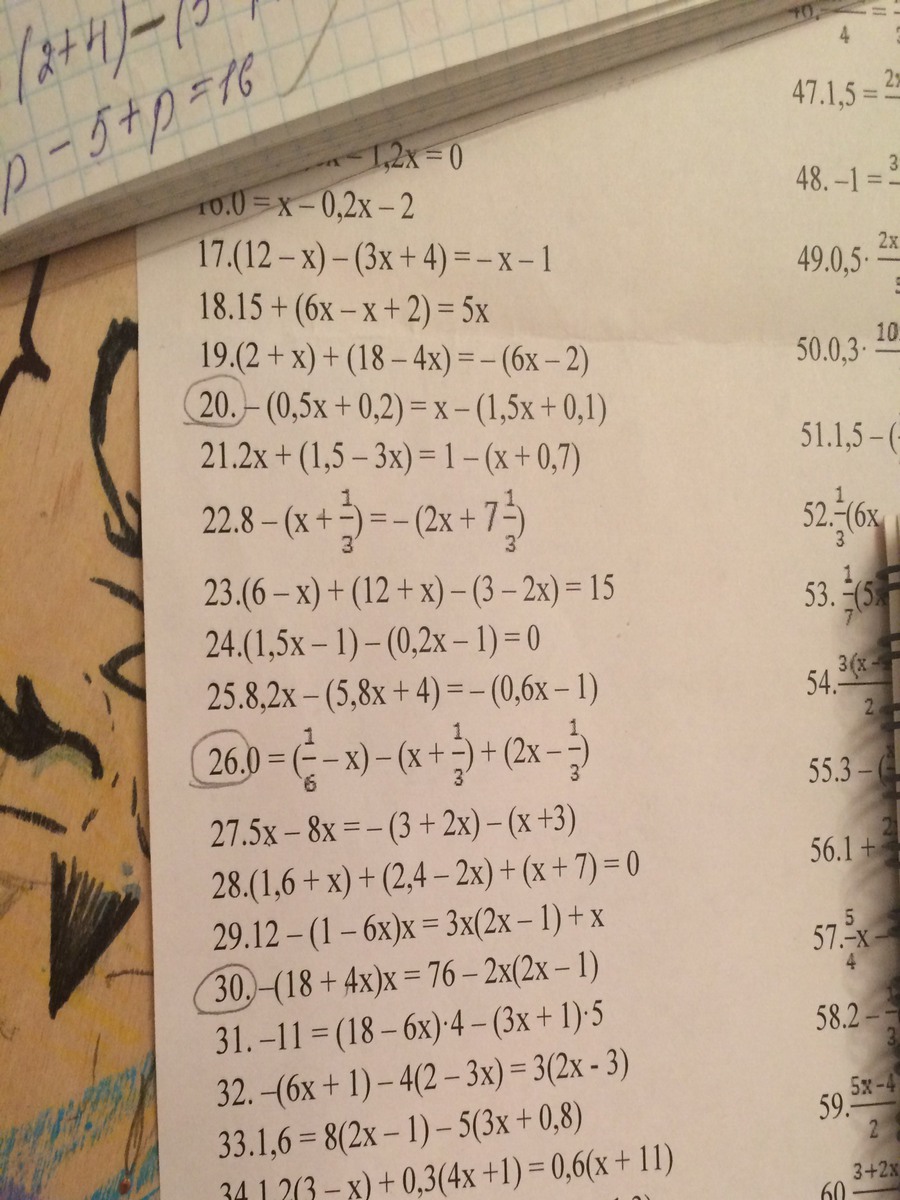 (2+4)-(5
p-5+p=16
x – 1,2x = 0
16.0 = x – 0,2x – 2
17.(12 – x) – (3x + 4) = – x – 1
18.15 + (6x – x + 2) = 5x
19.(2 + x) + (18 – 4x) = – (6x – 2)
20. – (0,5x + 0,2) = x – (1,5x + 0,1)
21.2x + (1,5 – 3x) = 1 – (x + 0,7)
22.8 – (x + 1/3) = – (2x + 7 1/3)
23.(6 – x) + (12 + x) – (3 – 2x) = 15
24.(1,5x – 1) – (0,2x – 1) = 0
25.8,2x – (5,8x + 4) = – (0,6x – 1)
26.0 = (1/6 – x) – (x + 1/3) + (2x – 1/3)
27.5x – 8x = – (3 + 2x) – (x +3)
28.(1,6 + x) + (2,4 – 2x) + (x + 7) = 0
29.12 – (1 – 6x)x = 3x(2x – 1) + x
30. –(18 + 4x)x = 76 – 2x(2x – 1)
31. –11 = (18 – 6x)·4 – (3x + 1)·5
32. –(6x + 1) – 4(2 – 3x) = 3(2x - 3)
33.1,6 = 8(2x – 1) – 5(3x + 0,8)
34.1,2(3 – x) + 0,3(4x +1) = 0,6(x + 11)
4 =
47.1,5 = 2x
48. –1 = 3
49.0,5· 2x
50.0,3· 10
51.1,5 – (
52. 1/3 (6x
53. 1/7 (5x
54. 3(x – / 2
55.3 – (
56.1 + 2
57. 5/4 x –
58.2 – 1/3
59. 5x -4 / 2
60. 3+2x